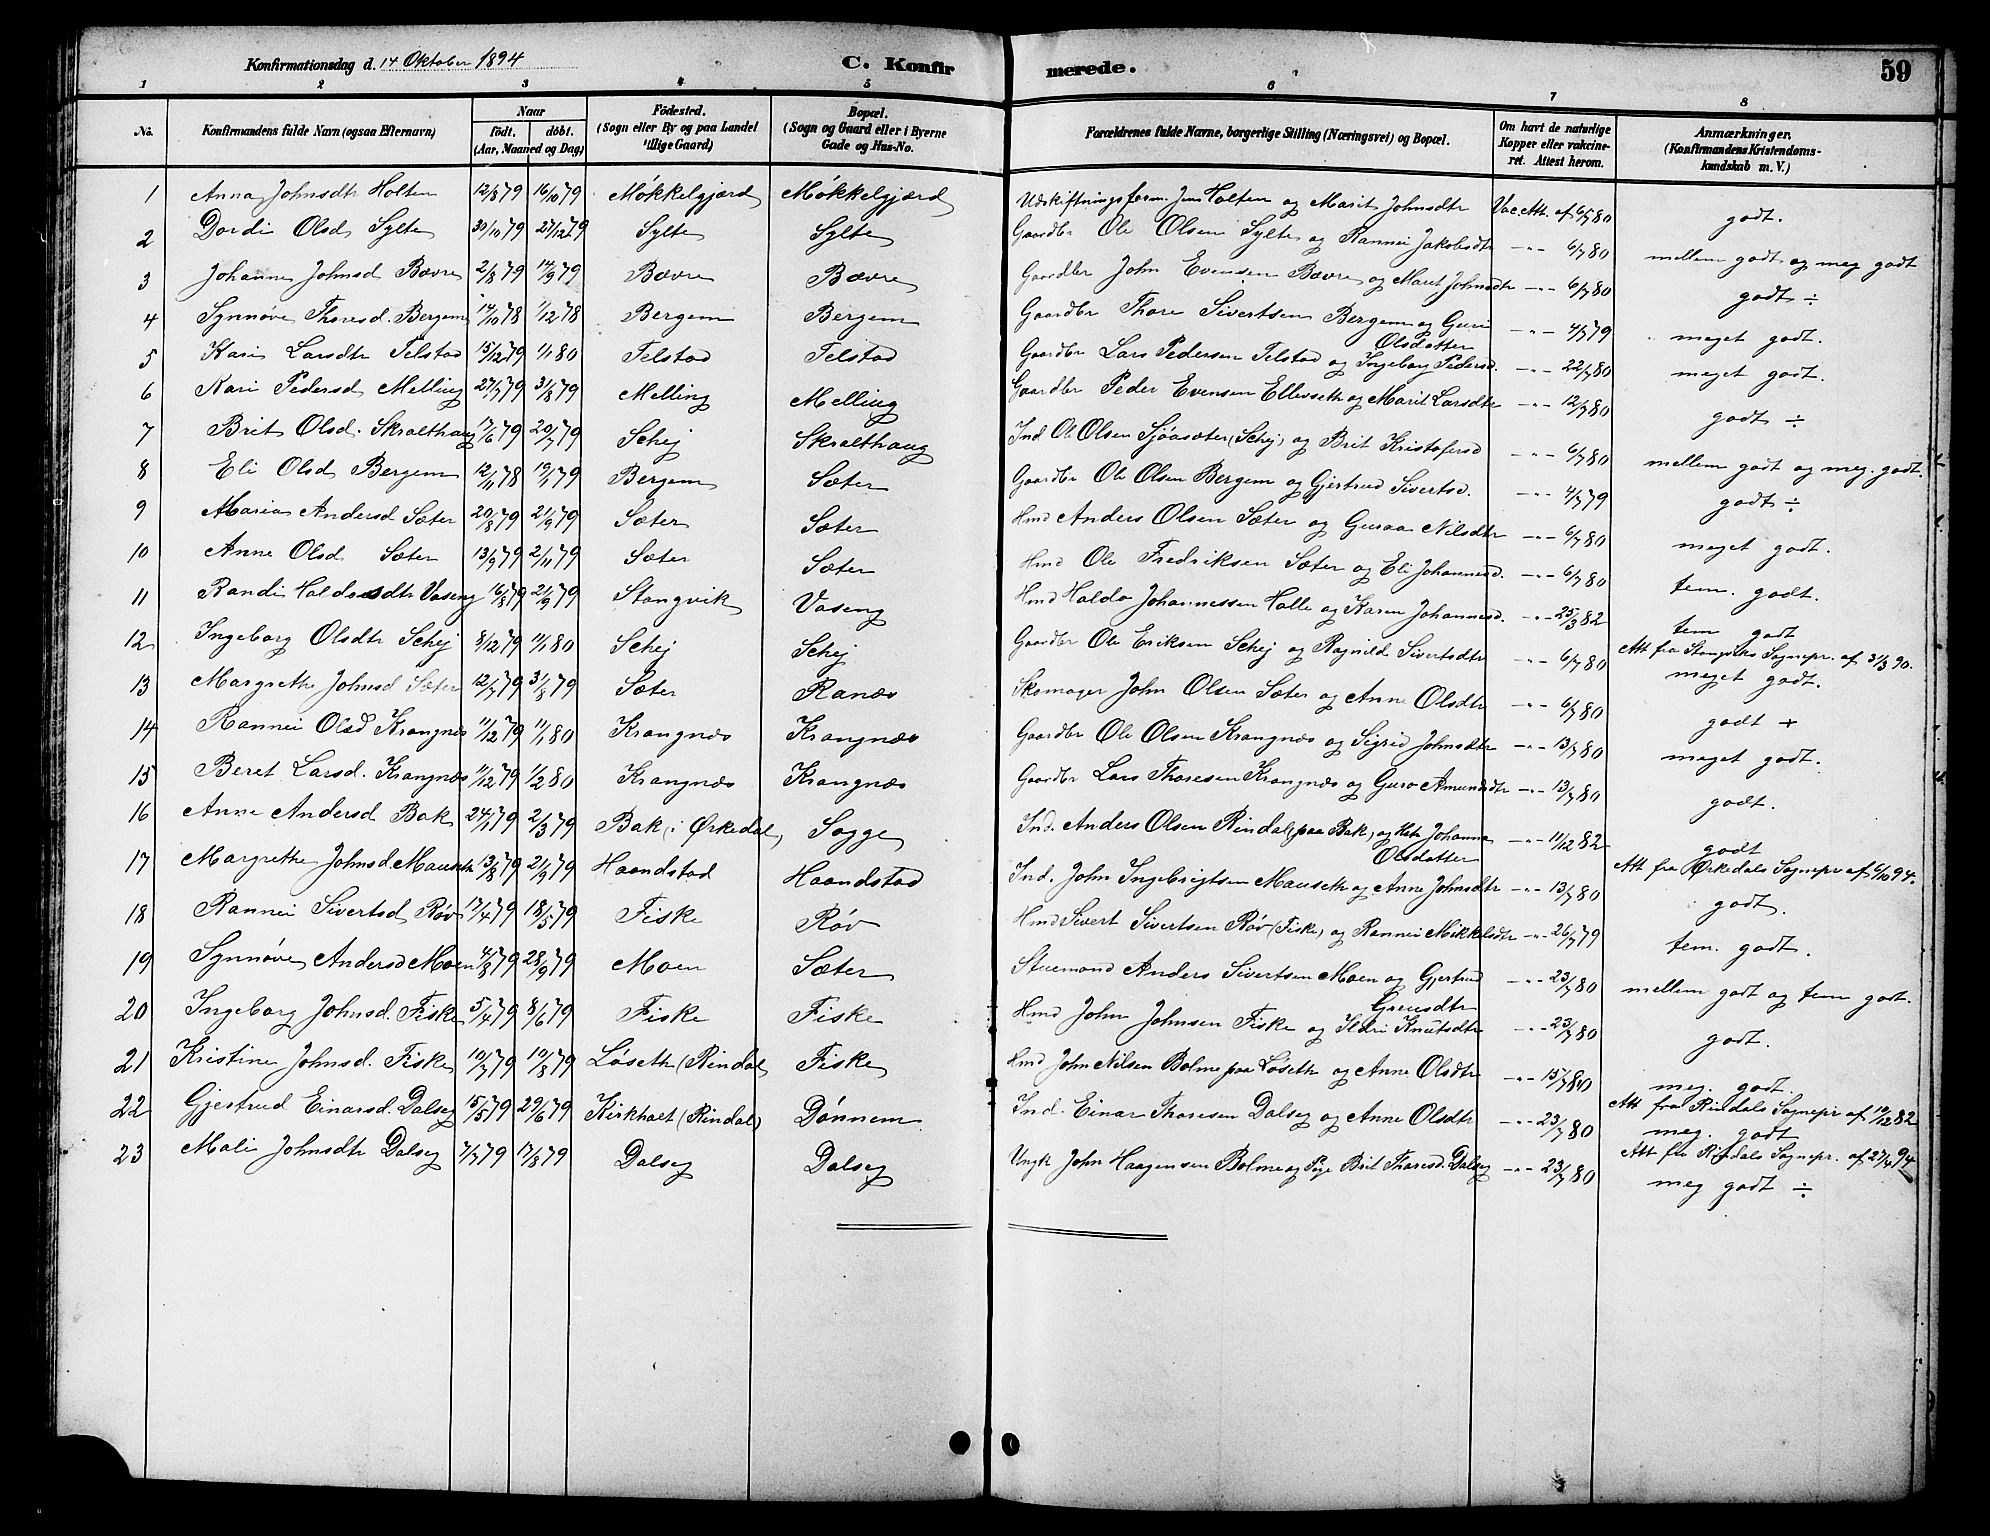 Konfirmationsdag d. 14 Oktober 1894 C. Konfirmerede. 59
1 2 3 4 5 6 7 8
No. Konfirmandens fulde Navn (ogsaa Efternavn) Naar födt. döbt. (Aar, Maaned og Dag) Födested. (Sogn eller By og paa Landet tillige Gaard) Bopæl. (Sogn og Gaard eller i Byerne Gade og Hus-No. Forældrenes fulde Navne, borgerlige Stilling (Næringsvei) og Bopæl. Om havt de naturlige Kopper eller vakcineret. Attest herom. Anmærkninger. (Konfirmandens Kristendomskundskab m. V.)
1 Anna Johnsdtr Holten 12/8 79 16/10 79 Møkkelgjærd Møkkelgjærd Udskiftningsform. Jens Holten og Marit Johnsdtr Vac. Att. af 6/7 80 godt.
2 Dordi Olsd Sylte 30/10 79 27/12 79 Sylte Sylte Gaardbr Ole Olsen Sylte og Rannei Jakobsdtr -"- 6/7 80 mellem godt og meg godt
3 Johanne Johnsd Bævre 2/8 79 14/9 79 Bævre Bævre Gaardbr John Evensen Bævre og Marit Johnsdtr -"- 6/7 80 godt ÷
4 Synnøve Thoresd. Bergem 14/10 78 1/12 78 Bergem Bergem Gaardbr Thore Sivertsen Bergem og Guri Olsdatter -"- 4/7 79 meget godt.
5 Kari Larsdtr Telstad 15/12 79 1/1 80 Telstad Telstad Gaardbr Lars Pedersen Telstad og Ingeborg Pedersd. -"- 22/7 80 meget godt.
6 Kari Pedersd Melling 27/7 79 31/8 79 Melling Melling Gaardbr Peder Evensen Ellevseth og Marit Larsdtr -"- 12/7 80 godt ÷
7 Brit Olsd. Skralthaug 17/6 79 20/7 79 Schej Skralthaug Ind Ole Olsen Sjöasæter (Schej) og Brit Kristofersd -"- 6/7 80 mellem godt og meg. godt.
8 Eli Olsd Bergem 12/11 78 19/1 79 Bergem Sæter Gaardbr Ole Olsen Bergem og Gjertrud Sivertsd. -"- 4/7 79 godt ÷
9 Maria Andersd Sæter 20/8 79 21/9 79 Sæter Sæter Hmd Anders Olsen Sæter og Guraa Nilsdtr -"- 6/7 80 meget godt.
10 Anne Olsd Sæter 13/9 79 2/11 79 Sæter Sæter Hmd Ole Fredriksen Sæter og Eli Johannesd. -"- 6/7 80 tem. godt.
11 Randi Haldosdtr Vaseng 16/8 79 21/9 79 Stangvik Vaseng Hmd Haldo Johannessen Halle og Karen Johannesd. -"- 25/3 82 tem godt
Att fra Stangviks Sognepr. af 31/3 90.
12 Ingeborg Olsdtr Schej 8/12 79 11/1 80 Schej Schej Gaardbr Ole Eriksen Schej og Ragnild Sivertsdtr -"- 6/7 80 meget godt.
13 Margrethe Johnsd Sæter 12/7 79 31/8 79 Sæter Ranæs Skomager John Olsen Sæter og Anne Olsdtr -"- 6/7 80 godt +
14 Rannei Olsd Krangnæs 11/12 79 11/1 80 Krangnæs Krangnæs Gaardbr Ole Olsen Krangnæs og Sigrid Johnsdtr -"- 13/7 80 meget godt.
15 Beret Larsd. Krangnæs 11/12 79 1/2 80 Krangnæs Krangnæs Gaardbr Lars Thoresen Krangnæs og Guro Amundsdtr -"- 13/7 80 godt.
16 Anne Andersd Bak 24/1 79 2/3 79 Bak (i Ørkedal) Sogge Ind. Anders Olsen Rindal (paa Bak) og Johanna Olsdatter -"- 11/12 82 godt
Att fra Ørkedals Sognepr af 6/10 94.
17 Margrethe Johnsd. Mauseth 13/8 79 21/9 79 Haandstad Haandstad Ind. John Ingebrigtsen Mauseth og Anne Johnsdtr -"- 13/7 80 godt.
18 Rannei Sivertsd Røv 17/4 79 18/5 79 Fiske Røv Hmd Sivert Sivertsen Røv (Fiske) og Rannei Mikkelsdtr -"- 26/7 79 tem. godt.
19 Synnøve Andersd Moen 4/8 79 28/9 79 Moen Sæter Stuemand Anders Sivertsen Moen og Gjertrud -"- 23/7 80 mellem godt og tem godt.
20 Ingeborg Johnsd. Fiske 5/4 79 8/6 79 Fiske Fiske Hmd John Johnsen Fiske og Ildri Knutsdtr -"- 23/7 80 godt.
21 Kristine Johnsd. Fiske 10/7 79 10/8 79 Løseth (Rindal) Fiske Hmd John Nilsen Bolme paa Løseth og Anne Olsdtr -"- 15/7 80 meg. godt
Att fra Rindals Sognepr af 10/12 82
22 Gjertrud Einarsd. Dalseg 15/5 79 29/6 79 Kirkholt (Rindal) Dönnem Ind. Einar Thoresen Dalseg og Anne Olsdtr -"- 23/7 80 meg. godt
Att fra Rindals Sognepr. af 27/4 94
23 Mali Johnsdtr Dalseg 7/7 79 17/8 79 Dalseg Dalseg Ungk John Haagensen Bolme og Pige Brit Thoresd. Dalseg -"- 23/7 80 meg godt ÷